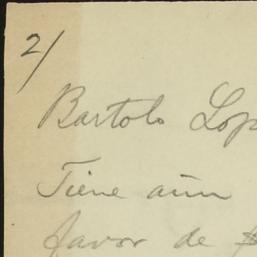 2/
Bartolo Lop
Tiene aún
favor de $